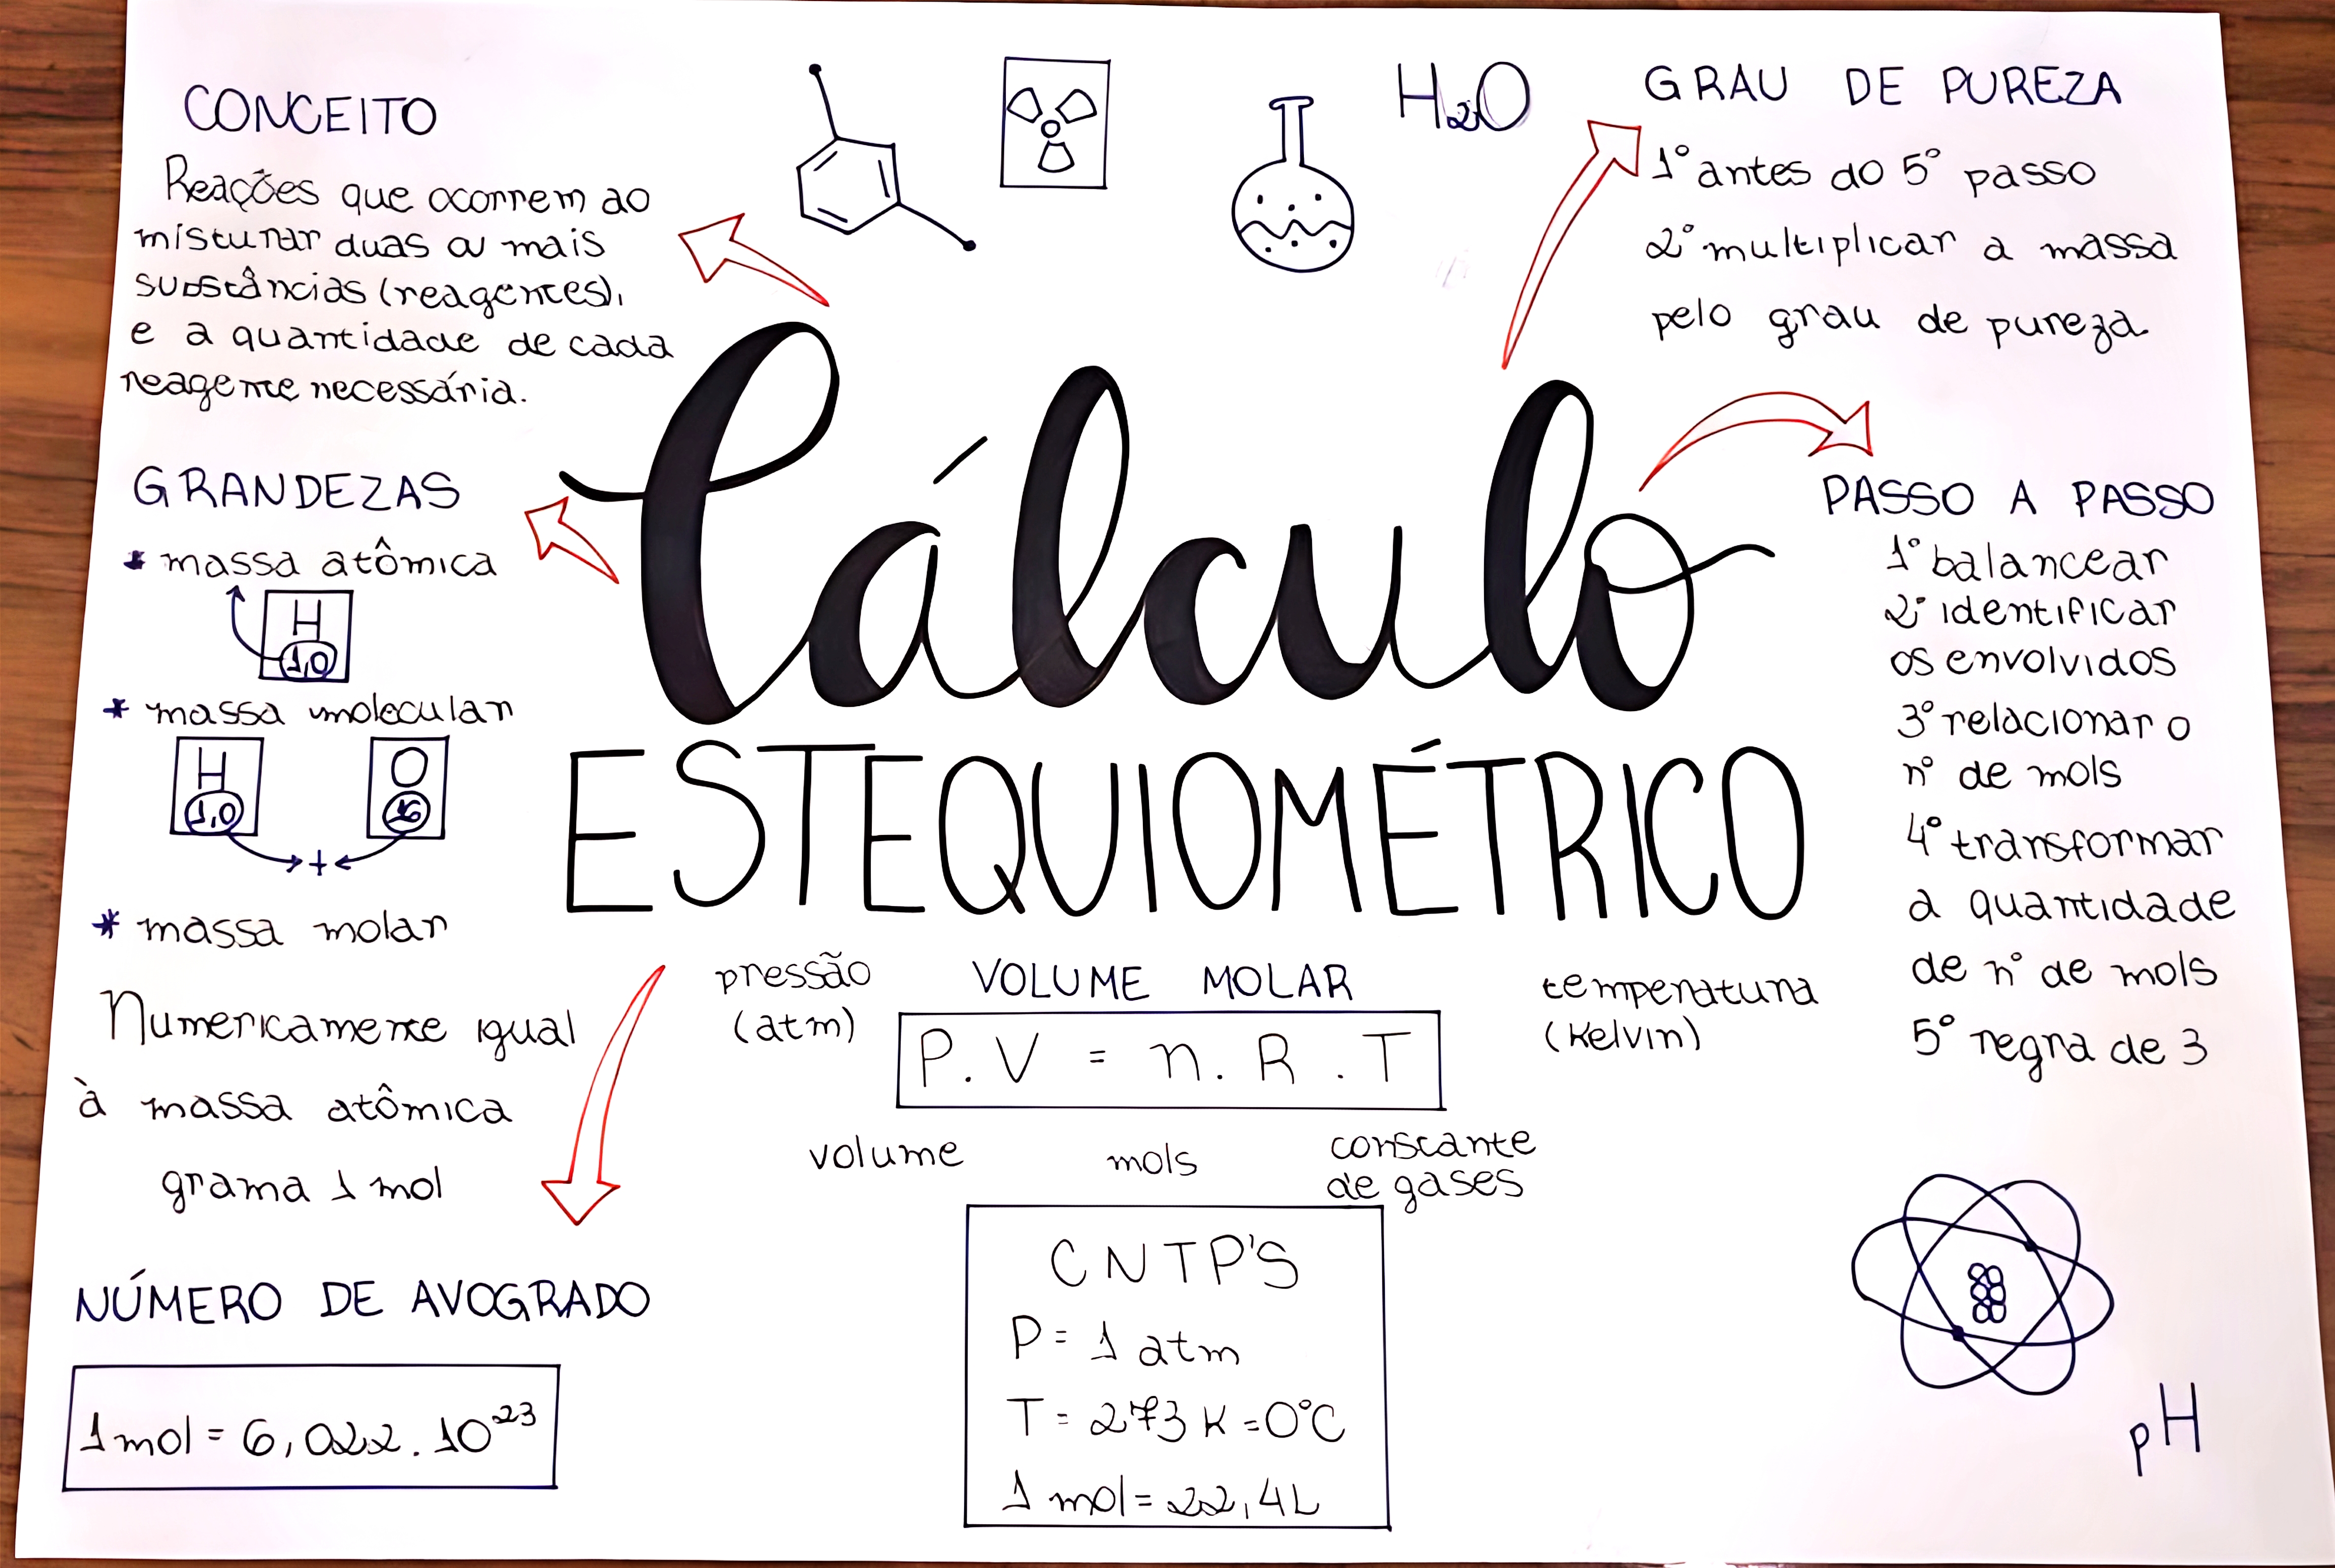 CONCEITO
Reações que ocorrem ao
misturar duas ou mais
substâncias (reagentes),
e a quantidade de cada
reagente necessária.
H₂O
GRAU DE PUREZA
1° antes do 5° passo
2° multiplicar a massa
pelo grau de pureza
Cálculo
ESTEQUIOMÉTRICO
GRANDEZAS
* massa atômica
H
1,0
* massa molecular
H O
1,0 16
+
* massa molar
Numericamente igual
à massa atômica
grama 1 mol
NÚMERO DE AVOGRADO
1 mol = 6,022.10²³
VOLUME MOLAR
pressão
(atm)
temperatura
(Kelvin)
P.V = n.R.T
volume
mols
constante
de gases
CNTP'S
P = 1 atm
T = 273 K = 0°C
1 mol = 22,4L
PASSO A PASSO
1° balancear
2° identificar
os envolvidos
3° relacionar o
n° de mols
4° transformar
a quantidade
de n° de mols
5° regra de 3
pH